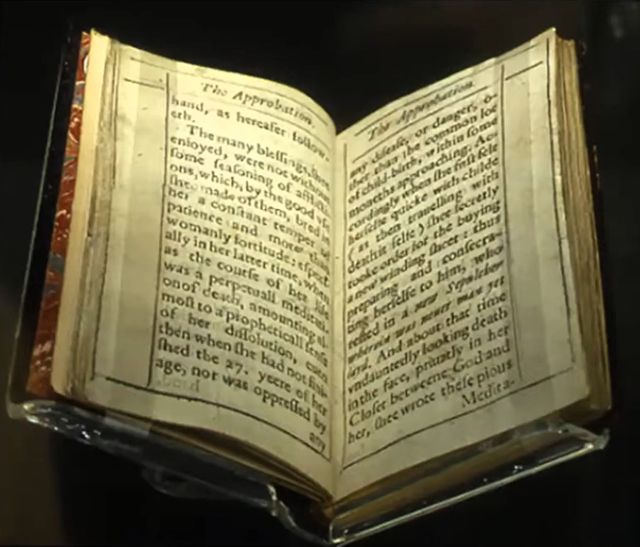 The Approbation.
hand, as hereafter follow-
eth.
The many bleſſings, ſhee
enioyed, were not without
ſome ſeaſoning of afflicti-
ons, which, by the good vſe
ſhee made of them, bred in
her a conſtant temper of
patience and more than
womanly fortitude: eſpeci-
ally in her latter time, when
as the courſe of her life
was a perpetuall meditati-
on of death, amounting al-
moſt to a propheticall ſenſe
of her diſſolution, euen
then when ſhe had not fini-
ſhed the 27. yeere of her
age, nor was oppreſſed by
any
The Approbation.
any diſeaſe, or danger, o-
ther than the common lot
of child-birth, within ſome
months approaching. Ac-
cordingly when ſhe firſt felt
herſelfe quicke with childe
(as then trauelling with
death it ſelfe) ſhee ſecretly
tooke order for the buying
a new winding ſheet: thus
preparing and conſecra-
ting herſelfe to him, who
reſted in a new Sepulcher
wherein was neuer man yet
laid. And about that time
vndauntedly looking death
in the face, priuatly in her
Cloſet betweene God and
her, ſhee wrote theſe pious
Medita-